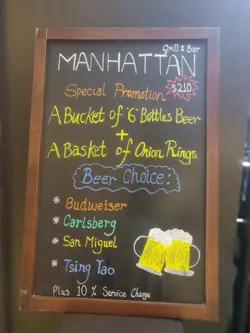 Grill & Bar
MANHATTAN
Special Promotion $210
A Bucket of "6" Bottles Beer
+
A Basket of Onion Rings
Beer Choice:
* Budweiser
* Carlsberg
* San Miguel
* Tsing Tao
Plus 10 % Service Charge